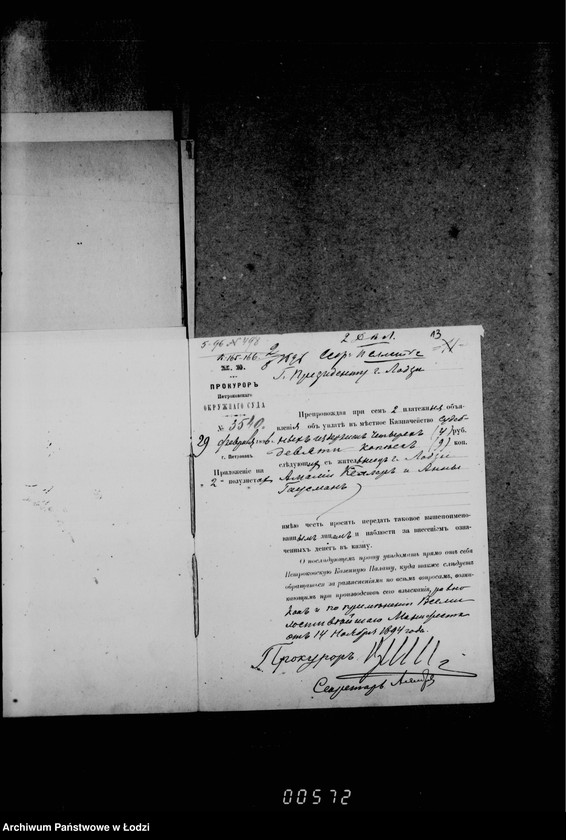 2
13
Г. Президенту г. Лодзи
М. Ю.
ПРОКУРОРЪ
Петроковскаго
ОКРУЖНАГО СУДА
№ 3540
29 февраля
г. Петроковъ
Приложеніе на
"2" полулистахъ
Препровождая при семъ 2 платежныя объя-
вленія объ уплатѣ въ мѣстное Казначейство судеб-
ныхъ издержекъ четырехъ (4) руб.
девяти копѣекъ (9) коп.
слѣдующихъ съ жительницъ г. Лодзи
Амаліи и Анны
Гаусманъ
имѣю честь просить передать таковое вышепоимено-
ваннымъ лицамъ и наблюсти за внесеніемъ озна-
ченныхъ денегъ въ казну.
О послѣдующемъ прошу увѣдомить прямо отъ себя
Петроковскую Казенную Палату, куда также слѣдуетъ
обращаться за разъясненіемъ по всѣмъ вопросамъ, возни-
кающимъ при производствѣ сего взысканія, равно
какъ и по примѣненію Всеми-
лостивѣйшаго Манифеста
отъ 14 Ноября 1894 года.
Прокуроръ
Секретарь
00572
Archiwum Państwowe w Łodzi